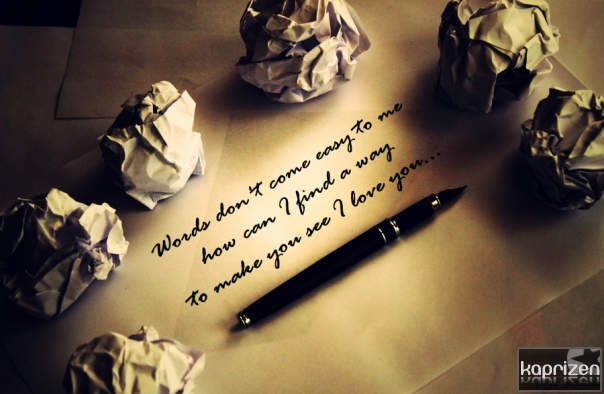 Words don't come easy to me
how can I find a way
to make you see I love you...
kaprizen